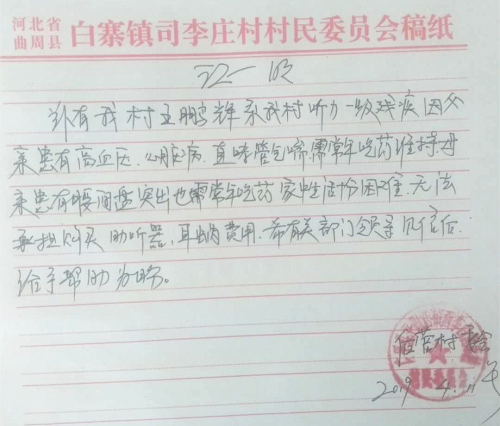 河北省
曲周县 白寨镇司李庄村村民委员会稿纸
证明
兹有我村王鹏辉系我村听力一级残疾因父
亲患有高血压、心脏病、直哮管气喘需常年吃药维持.母
亲患有腰间盘突出也需常年吃药家庭生活十分困难.无法
承担购买助听器,耳蜗费用.希有关部门领导见信后
给予帮助为盼。
2019. 4. 11